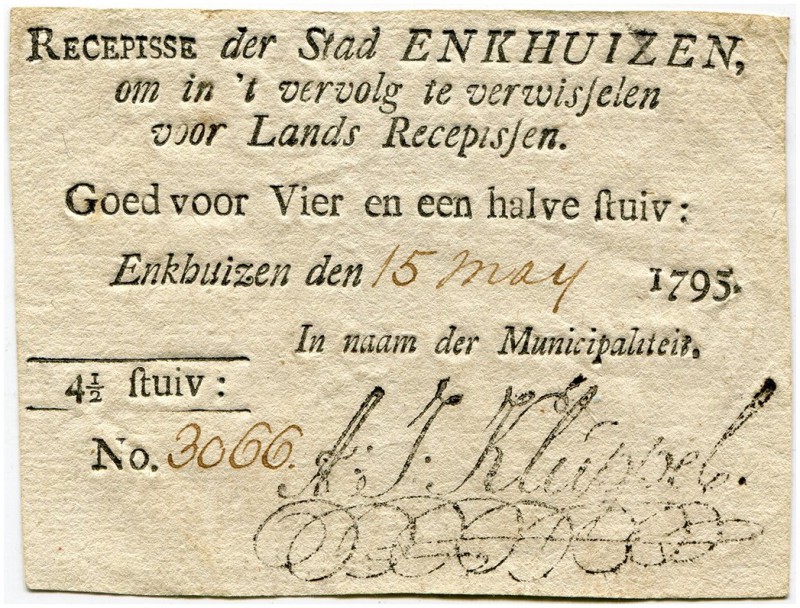 RECEPISSE der Stad ENKHUIZEN,
om in 't vervolg te verwisſelen
voor Lands Recepisſen.
Goed voor Vier en een halve ſtuiv:
Enkhuizen den 15 may 1795.
In naam der Municipaliteit.
4½ ſtuiv:
No. 3066.
A: J: Kluppel.